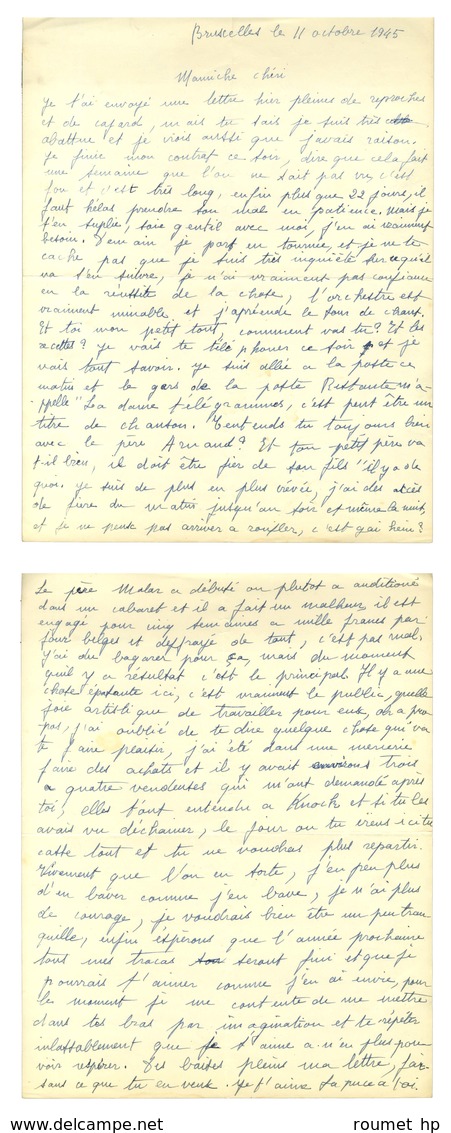 Bruxelles le 11 octobre 1945
Mamiche chéri
Je t'ai envoyé une lettre hier pleine de reproches
et de cafard, mais tu sais je suis très
abattue et je viois aussi que j'avais raison.
Je finis mon contrat ce soir, dire que cela fait
une semaine que l'on ne s'ait pas vu, c'est
fou et c'est très long, enfin plus que 22 jours, il
faut hélas prendre son mal en patience, mais je
t'en suplie, sois gentil avec moi, j'en ai vraiment
besoin. Demain je part en tournée, et je ne te
cache pas que je suis très inquiète sur ce qui
va s'en suivre, je n'ai vraiment pas confiance
en la réussite de la chose, l'orchestre est
vraiment minable et j'apréende le tour de chant.
Et toi mon petit tout, comment vas tu? Et les
recettes? je vais te téléphoner ce soir et je
vais tout savoir. Je suis allée a la poste ce
matin et le gars de la poste Restante m'a-
ppelle "La dame télégrammes, c'est peut être un
titre de chanson. T'entends tu toujours bien
avec le père Arnaud? Et ton petit père va
t-il bien, il doit être fier de son fils "il y a de
quoi. Je suis de plus en plus crévée, j'ai des accès
de fièvre du matin jusqu'au soir et même la nuit,
et je ne peux pas arriver a ronfler, c'est gai hein?
Le père Malar a débuté ou plutot a auditioné
dans un cabaret et il a fait un malheur, il est
engagé pour cinq semaines a mille francs par
jour belges et deffrayé de tout, c'est pas mal,
j'ai du bagarer pour ça, mais du moment
qu'il y a résultat c'est le principal. Il y a une
chose épatante ici, c'est vraiment le public, quelle
joie artistique de travailler pour eux, ah a pro
pos, j'ai oublié de te dire quelque chose qui va
te faire plaisir, j'ai été dans une mercerie
faire des achats et il y avait trois
a quatre vendeuses qui m'ont demandé après
toi, elles t'ont entendu a Knock et si tu les
avais vu déchainer, le jour ou tu viens ici tu
casse tout et tu ne voudras plus repartir.
Vivement que l'on en sorte, j'en peu plus
d'en baver comme j'en bave, je n'ai plus
de courage, je voudrais bien être un peu tran
quille, enfin éspérons que l'année prochaine
tous mes tracas seront fini et que je
pourrais t'aimer comme j'en ai envie, pour
le moment je me contente de me mettre
dans tes bras par imagination et te répéter
inlassablement que je t'aime a n'en plus pou
voir respirer. Des baises pleins ma lettre, fais
sans ce que tu en veux. Je t'aime La puce a toi.
© roumet hp